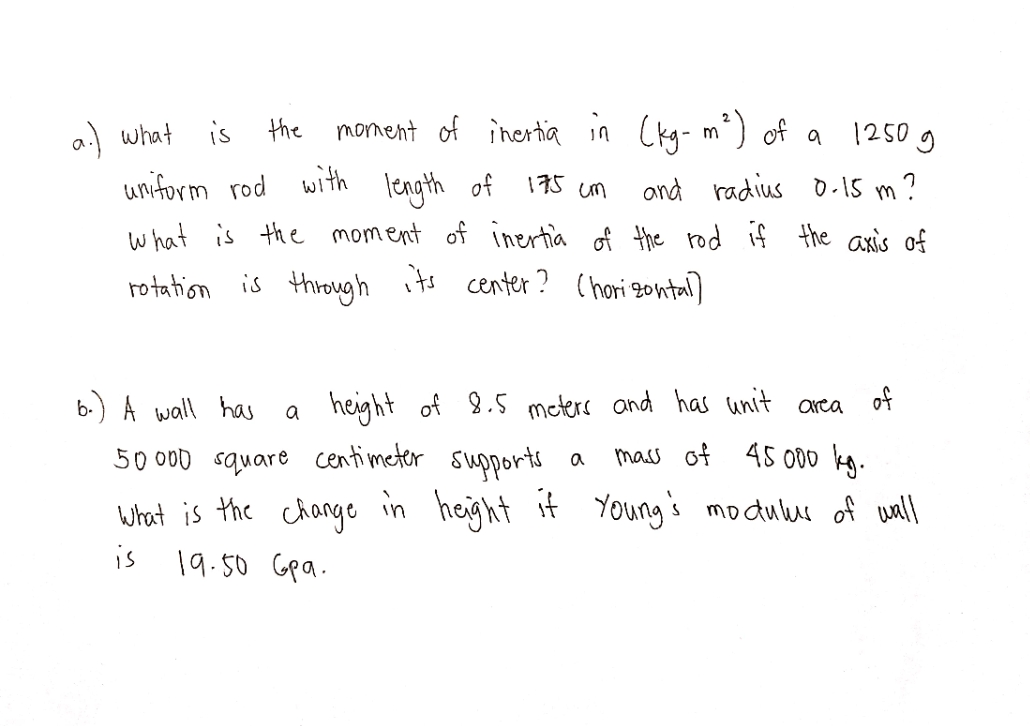 a.) what is the moment of inertia in (kg-m²) of a 1250 g
uniform rod with length of 175 cm and radius 0.15 m?
what is the moment of inertia of the rod if the axis of
rotation is through its center? (horizontal)
b.) A wall has a height of 8.5 meters and has unit area of
50 000 square centimeter supports a mass of 45 000 kg.
What is the change in height if Young's modulus of wall
is 19.50 Gpa.